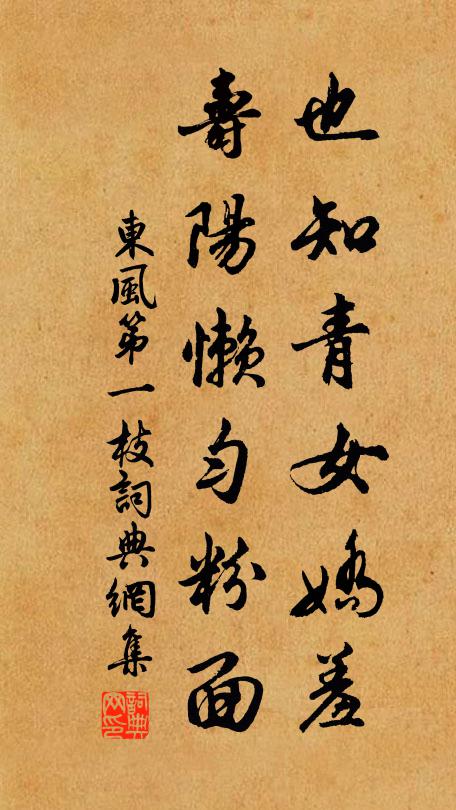 也知青女嬌羞
壽陽懶勻粉面
東風第一枝詞典網集
詞典網印